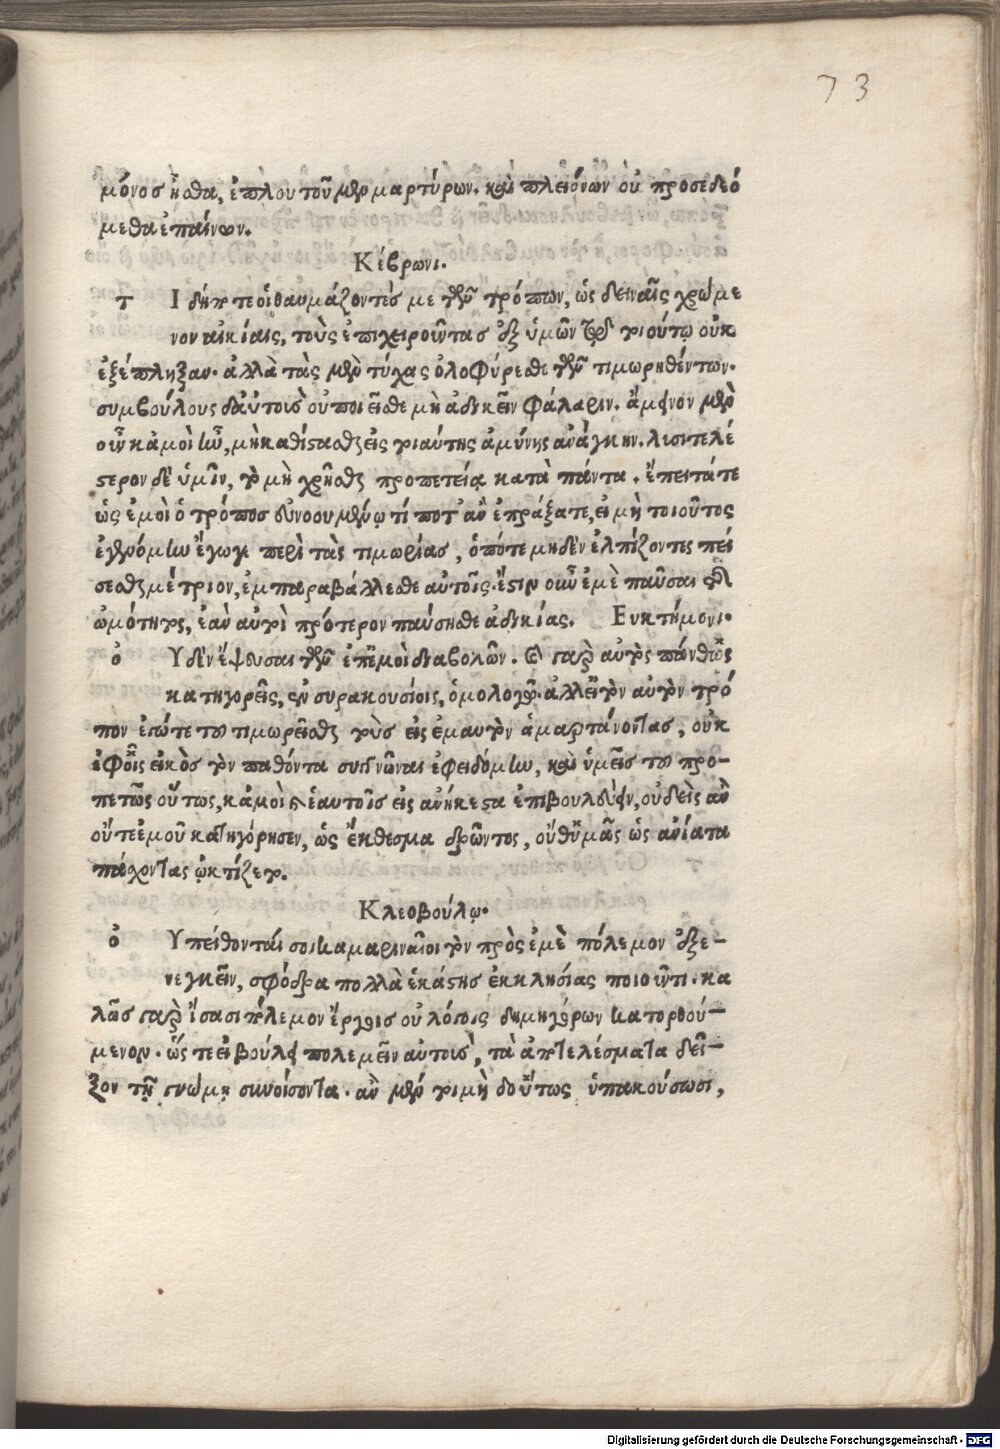 73
μόνος ἦσθα, ἐπλουτοῦμεν μαρτύρων. καὶ πλειόνων οὐ προσεδεό
μεθα ἐπαίνων.
Κέβρωνι.
τ Ι δήποτε οἱ θαυμάζοντές με τὸν τρόπων, ὡς δειναῖς χρώμε
νον αἰκίαις, τοὺς ἐπιχειροῦντας ἐξ ὑμῶν τῶν τοιούτῳ οὐκ
ἐξέπληξαν. ἀλλὰ τὰς μὲν τύχας ὀλοφύρεσθε τῶν τιμωρηθέντων.
συμβούλους δ' αὐτοῖς οὐ ποιεῖσθε μὴ ἀδικεῖν Φάλαριν. ἄμεινον μὲν
οὖν κἀμοὶ ἦν, μὴ καθίστασθαι εἰς τοιαύτης ἀμύνης ἀνάγκην. λυσιτελέ
στερον δὲ ὑμῖν, τὸ μὴ χρῆσθαι προπετείᾳ κατὰ πάντα. ἔπειτά τε
ὡς ἐμοὶ ὁ τρόπος εὐνοουμένῳ τί ποτ' ἂν ἐπράξατε, εἰ μὴ τοιοῦτος
ἐγενόμην ἔγωγε περὶ τὰς τιμωρίας, ὁπότε μηδὲν ἐλπίζοντες πεί
σεσθαι μέτριον, ἐμπαραβάλλεσθε αὐτοῖς. ἔστιν οὖν ἐμὲ παῦσαι τῆς
ὠμότητος, ἐὰν αὐτοὶ πρότερον παύσησθε ἀδικίας. Ευκτήμονι.
ὀ Υδὲν ἔψευσαι τῶν ἐπ' ἐμοὶ διαβολῶν. ἃ γὰρ αὐτὸς πανθῶς
κατηγορεῖς, ἐν συρακουσίοις, ὁμολογῶ. ἀλλ' εἰ τὸν αὐτὸν τρό
πον ἐγώ τε τὸ τιμωρεῖσθαι τοὺς εἰς ἐμαυτὸν ἁμαρτάνοντας, οὐκ
ἐφ' οἷς εἰκὸς τὸν παθόντα συγγνῶναι ἐφειδόμην, καὶ ὑμεῖς τὸ προ-
πετῶς οὕτως, κἀμοὶ καὶ ἑαυτοῖς εἰς ἀνήκεστα ἐπιβουλεύειν, οὐδεὶς ἂν
οὔτε ἐμοῦ κατηγόρησεν, ὡς ἔκθεσμα δρῶντος, οὔθ' ὑμᾶς ὡς ἀνίατα
πάσχοντας ᾠκτίζετο.
Κλεοβούλῳ.
ὀ Υ πείθονταί σοι καμαριναῖοι τὸν πρὸς ἐμὲ πόλεμον ἐξε-
νεγκεῖν, σφόδρα πολλὰ ἑκάστης ἐκκλησίας ποιοῦντι. κα
λῶς γὰρ ἴσασι πόλεμον ἔργοις οὐ λόγοις δημηγόρων κατορθού-
μενον. ὥς τε εἰ βούλει πολεμεῖν αὐτοῖς, τὰ ἀποτελέσματα δεῖ-
ξον τῇ γνώμῃ συνοίσοντα. ἂν μέν τοι μὴ δ' οὕτως ὑπακούσωσι,
Digitalisierung gefördert durch die Deutsche Forschungsgemeinschaft - DFG